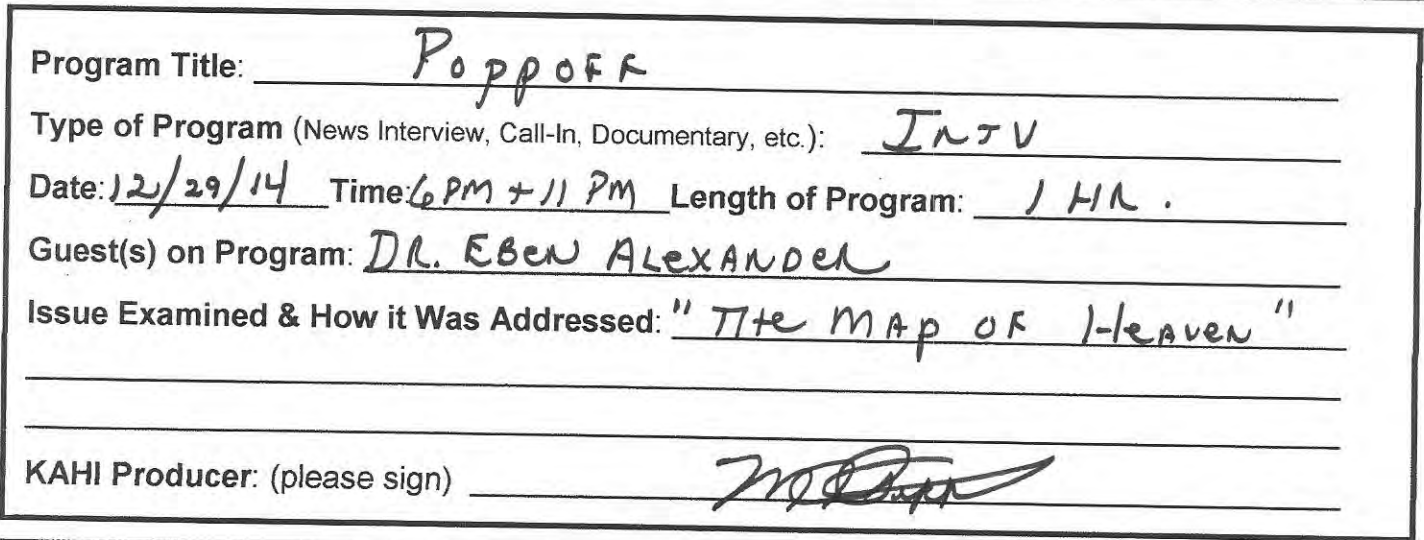 Program Title: Poppoff
Type of Program (News Interview, Call-In, Documentary, etc.): INTV
Date: 12/29/14 Time: 6 PM + 11 PM Length of Program: 1 HR.
Guest(s) on Program: DR. EBEN ALEXANDER
Issue Examined & How it Was Addressed: "THE MAP OF HEAVEN"
KAHI Producer: (please sign)